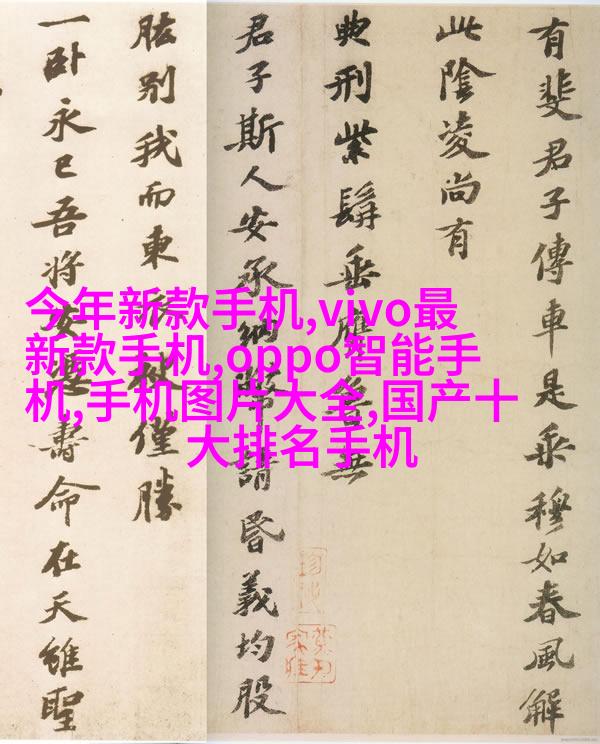 有斐君子傳車是乘穆如春風解
此陰凌尚有
典刑紫髯垂膺魯無
君子斯人安承納幣請昏義均股
肱別我而東衣袂僅勝
一卧永已吾將安憑壽命在天雖聖
今年新款手机,vivo最
新款手机,oppo智能手
机,手机图片大全,国产十
大排名手机